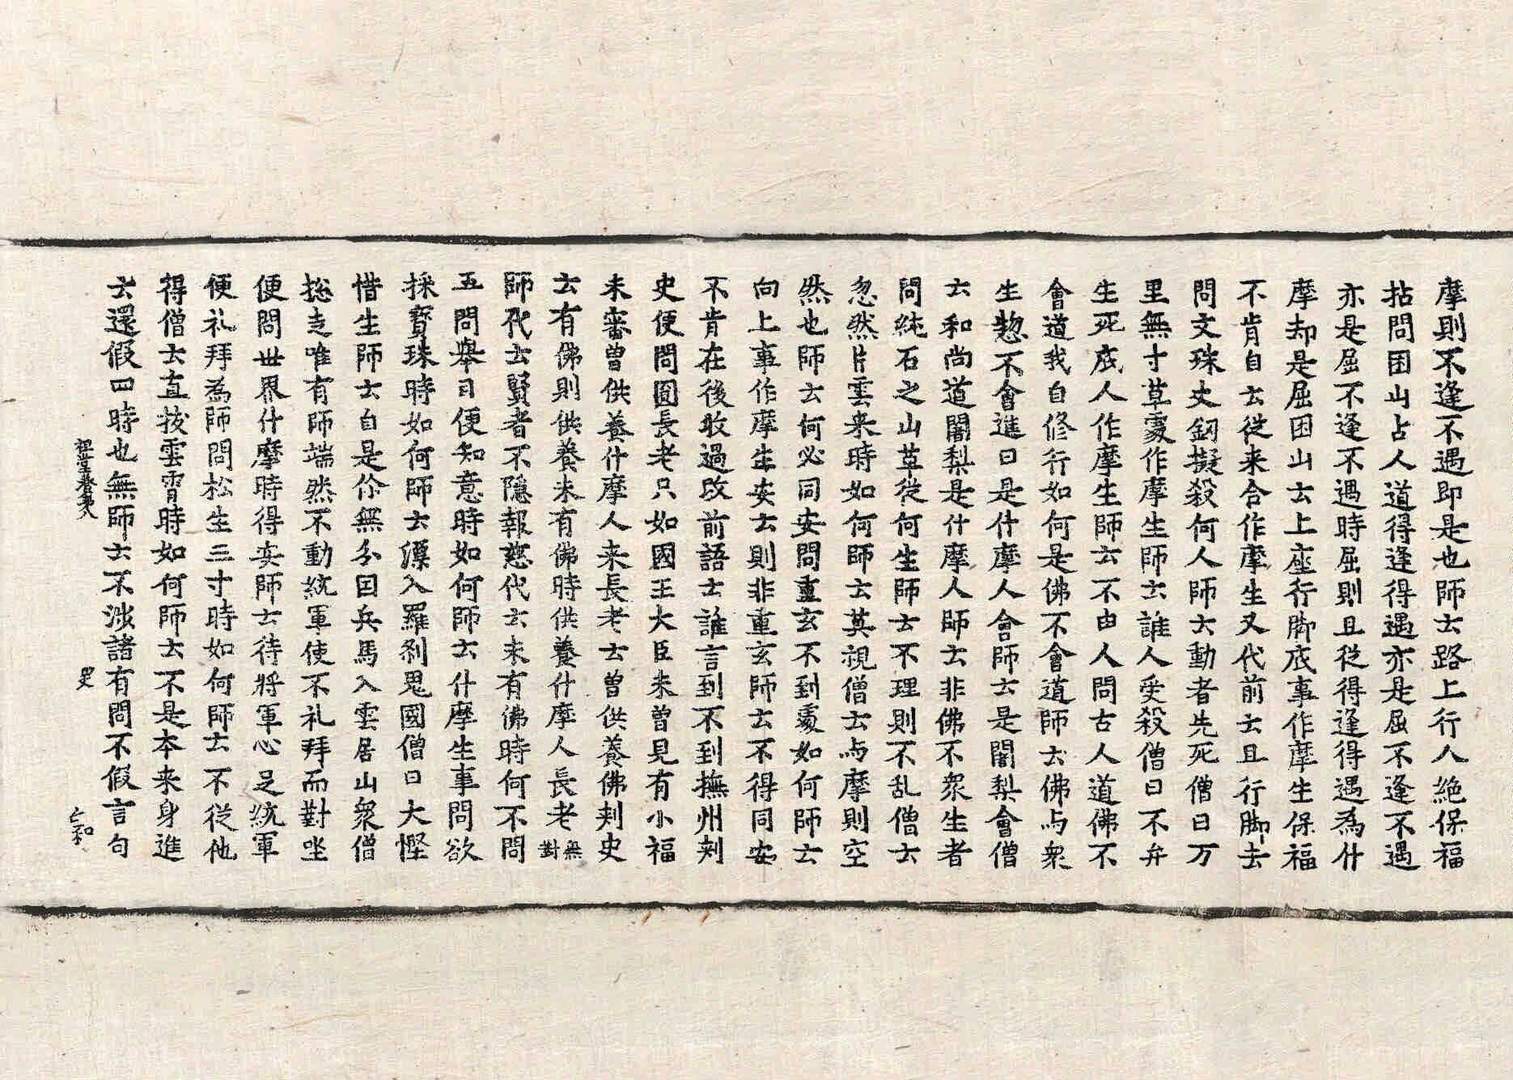 摩則不逢不遇即是也師士路上行人絕保福
拈問困山占人道得逢得遇亦是屈不逢不遇
亦是屈不逢不遇時屈則且從得逢得遇為什
摩却是屈困山去上座行脚底事作摩生保福
不肯自去從来合作摩生又代前士且行脚去
問文殊史釰擬殺何人師士動者先死僧曰万
里無寸草䖏作摩生師士誰人受殺僧曰不弁
生死底人作摩生師云不由人問古人道佛不
會道我自修行如何是佛不會道師去佛与衆
生惣不會進曰是什摩人會師去是闍梨會僧
士和尚道闍梨是什摩人師士非佛不衆生者
問純石之山草從何生師士不理則不乱僧士
忽然片雲来時如何師士莫視僧士与摩則空
然也師士何必同安問重玄不到䖏如何師士
向上事作摩生安士則非重玄師士不得同安
不肯在後敢過改前語士誰言到不到撫州刾
史便問圎長老只如國王大臣来曽見有小福
未審曽供養什摩人来長老士曽供養佛刾史
去有佛則供養未有佛時供養什摩人長老無對
師代士賢者不隱報慈代士未有佛時何不問
五問舉目便知意時如何師士什摩生事問欲
採寶珠時如何師士漂入羅刹鬼國僧曰大慳
惜生師士自是你無分因兵馬入雲居山衆僧
捴走唯有師端然不動統軍使不礼拜而對坐
便問世界什摩時得安師士待將軍心足統軍
便礼拜為師問松生三寸時如何師士不從他
得僧士直拔雲霄時如何師士不是本来身進
去還假四時也無師士不涉諸有問不假言句
祖堂卷第八